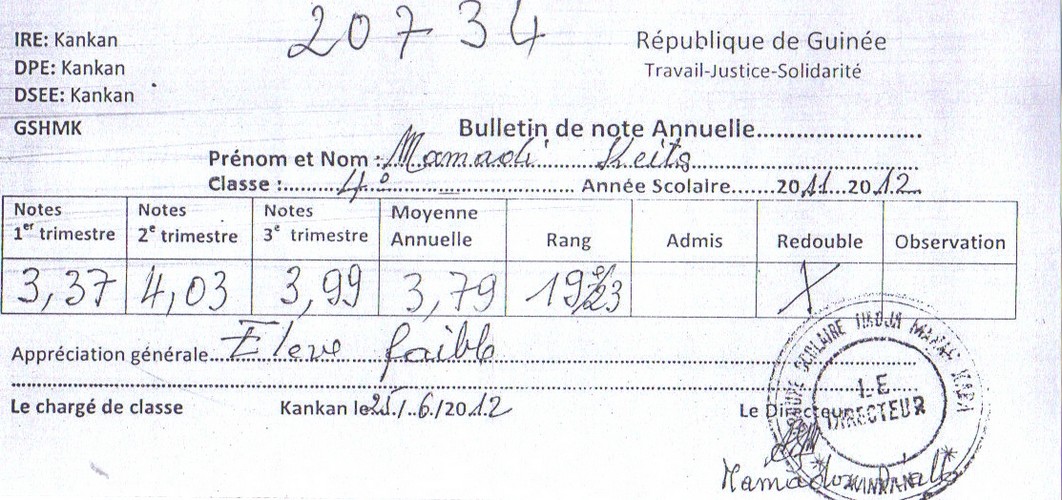 20734
IRE: Kankan
République de Guinée
DPE: Kankan
Travail-Justice-Solidarité
DSEE: Kankan
GSHMK
Bulletin de note Annuelle......................
Prénom et Nom : Mamadi Keita
Classe : 4° Année Scolaire.......2011...2012
Notes 1er trimestre
Notes 2e trimestre
Notes 3e trimestre
Moyenne Annuelle
Rang
Admis
Redouble
Observation
3,37
4,03
3,99
3,79
19e/23
X
Appréciation générale...Eleve faible
Le chargé de classe
Kankan le 25/..6./2012
Le Directeur
LE
DIRECTEUR